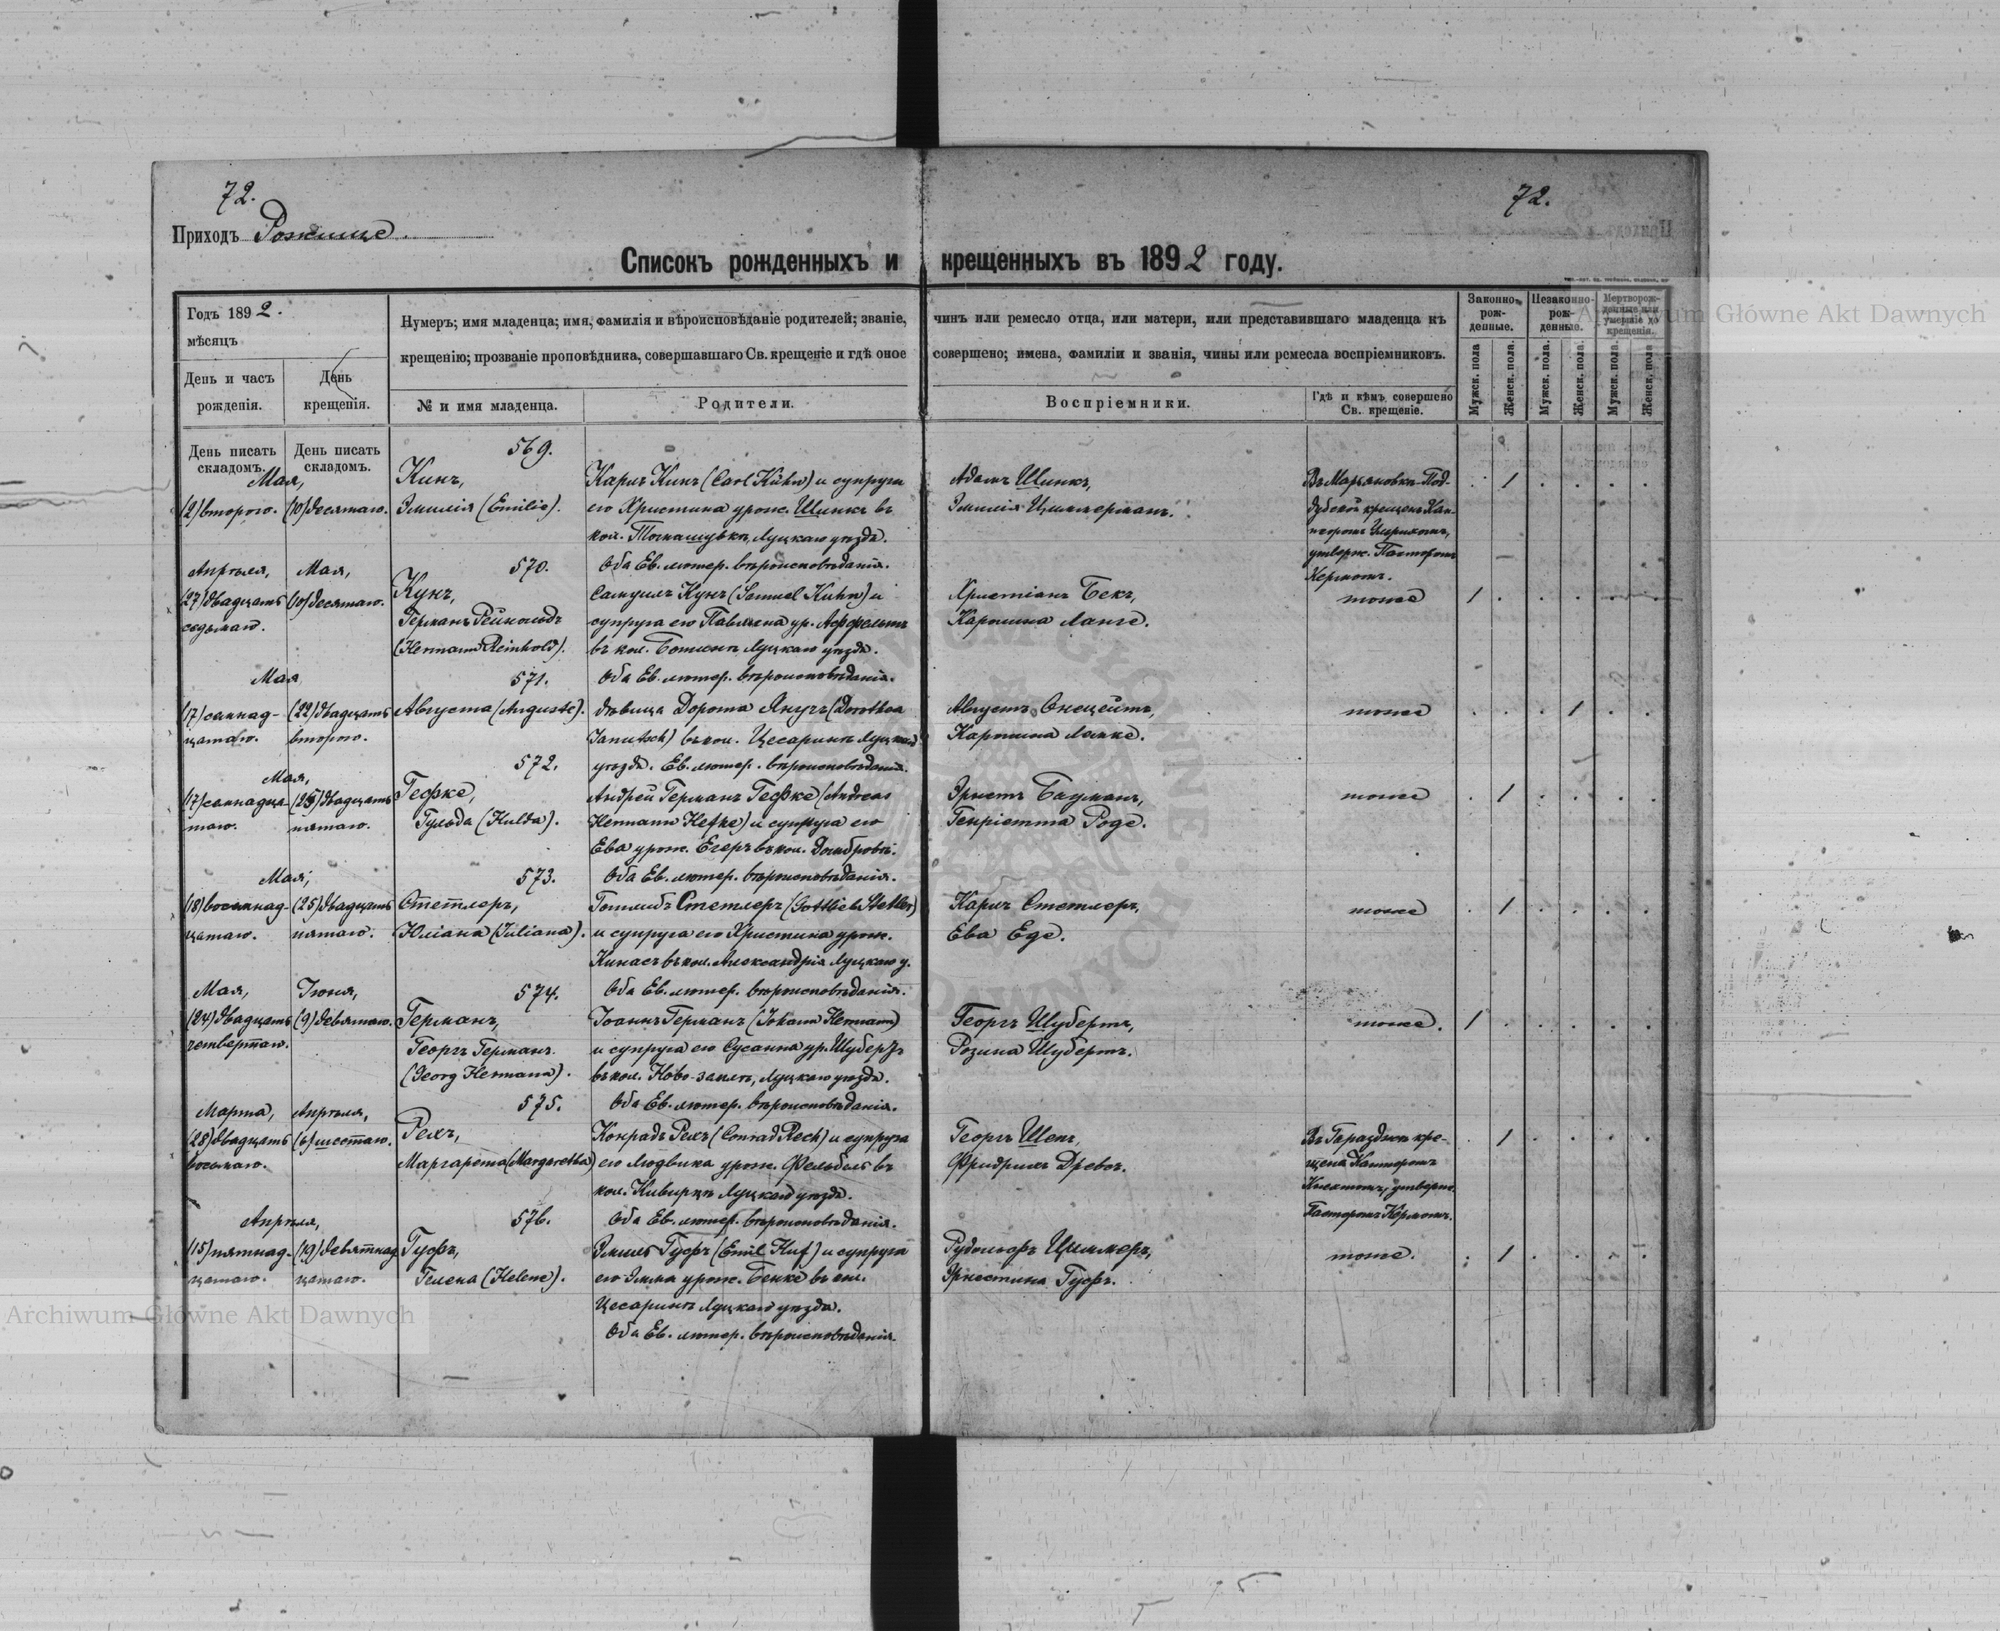 72.
72.
Приходъ Рожище
Списокъ рожденныхъ и крещенныхъ въ 1892 году.
Годъ 1892.
мѣсяцъ
День и часъ рожденія.
День крещенія.
Нумеръ; имя младенца; имя, фамилія и вѣроисповѣданіе родителей; званіе, чинъ или ремесло отца, или матери, или представившаго младенца къ
крещенію; прозваніе проповѣдника, совершавшаго Св. крещеніе и гдѣ оное совершено; имена, фамиліи и званія, чины или ремесла воспріемниковъ.
№ и имя младенца.
Родители.
Воспріемники.
Гдѣ и кѣмъ совершено Св. крещеніе.
Законно-рож-денные.
Незаконно-рож-денные.
Мертворож-денные или умершіе до крещенія.
Мужск. пола
Женск. пола.
Мужск. пола.
Женск. пола.
Мужск. пола.
Женск. пола
День писать складомъ.
День писать складомъ.
569.
Мая,
(2) второго.
(10) десятаго.
Кинъ,
Эмилія (Emilie).
Карлъ Кинъ (Carl Kühn) и супруга
его Христина урож. Шинкъ въ
кол. Луцкаго уѣзда.
Оба Ев. лютер. вѣроисповѣданія.
Адамъ Шинкъ,
Эмилія Циммерманъ.
Въ Марьяновкѣ-Под-
дубской крещенъ Кан-
торомъ
утверж. Пасторомъ
Кермомъ.
570.
Апрѣля,
Мая,
(27) двадцать
седьмаго.
(10) десятаго.
Кунъ,
Германъ Рейнольдъ
(Hermann Reinhold).
Самуилъ Кунъ (Samuel Kuhn) и
супруга его Павлина ур. Аффельтъ
въ кол. Луцкаго уѣзда.
Оба Ев. лютер. вѣроисповѣданія.
Христіанъ Бекъ,
Каролина Ланге.
тоже
571.
Мая
(17) семнад-
цатаго.
(22) двадцать
второго.
Августа (Auguste).
дѣвица Дорота Янучъ (Dorothea
Janutsch) въ кол. Цесаринѣ Луцкаго
уѣзда. Ев. лютер. вѣроисповѣданія.
Августъ
Каролина
тоже
572.
Мая,
(17) семнадца-
таго.
(25) двадцать
пятаго.
Гефке,
Гульда (Hulda).
Андрей Германъ Гефке (Andreas
Hermann Hefke) и супруга его
Ева урож. Егеръ въ кол. Домбровѣ.
Оба Ев. лютер. вѣроисповѣданія.
Эрнстъ Бауманъ,
Генріетта Роде.
тоже
573.
Мая,
(18) восемнад-
цатаго.
(25) двадцать
пятаго.
Стетлеръ,
Юліана (Juliana).
Готлибъ Стетлеръ (Gottlieb Stetler)
и супруга его Христина урож.
въ кол. Александрія Луцкаго у.
Оба Ев. лютер. вѣроисповѣданія.
Карлъ Стетлеръ,
Ева Еде.
тоже
574.
Мая,
Іюня,
(24) двадцать
четвертаго.
(9) девятаго.
Германъ,
Георгъ Германъ
(Georg Hermann).
Іоаннъ Германъ (Johann Hermann)
и супруга его Сусанна ур. Шубертъ
въ кол. Ново-землѣ, Луцкаго уѣзда.
Оба Ев. лютер. вѣроисповѣданія.
Георгъ Шубертъ,
Розина Шубертъ.
тоже.
575.
Марта,
Апрѣля,
(28) двадцать
восьмаго.
(6) шестаго.
Рехъ,
Маргарета (Margaretha)
Конрадъ Рехъ (Conrad Rech) и супруга
его Людвика урож. Фельбель въ
кол. Киверцѣ Луцкаго уѣзда.
Оба Ев. лютер. вѣроисповѣданія.
Георгъ
Фридрихъ Древсъ.
Въ кре-
щена Канторомъ
утверж.
Пасторомъ Кермомъ.
576.
Апрѣля,
(15) пятнад-
цатаго.
(19) девятнад-
цатаго.
Гуфъ,
Гелена (Helene).
Эмиль Гуфъ (Emil Huf) и супруга
его Эмма урож. Бенке въ кол.
Цесаринѣ Луцкаго уѣзда.
Оба Ев. лютер. вѣроисповѣданія.
Рудольфъ Циммеръ,
Эрнестина Гуфъ.
тоже.
Archiwum Główne Akt Dawnych
Archiwum Główne Akt Dawnych